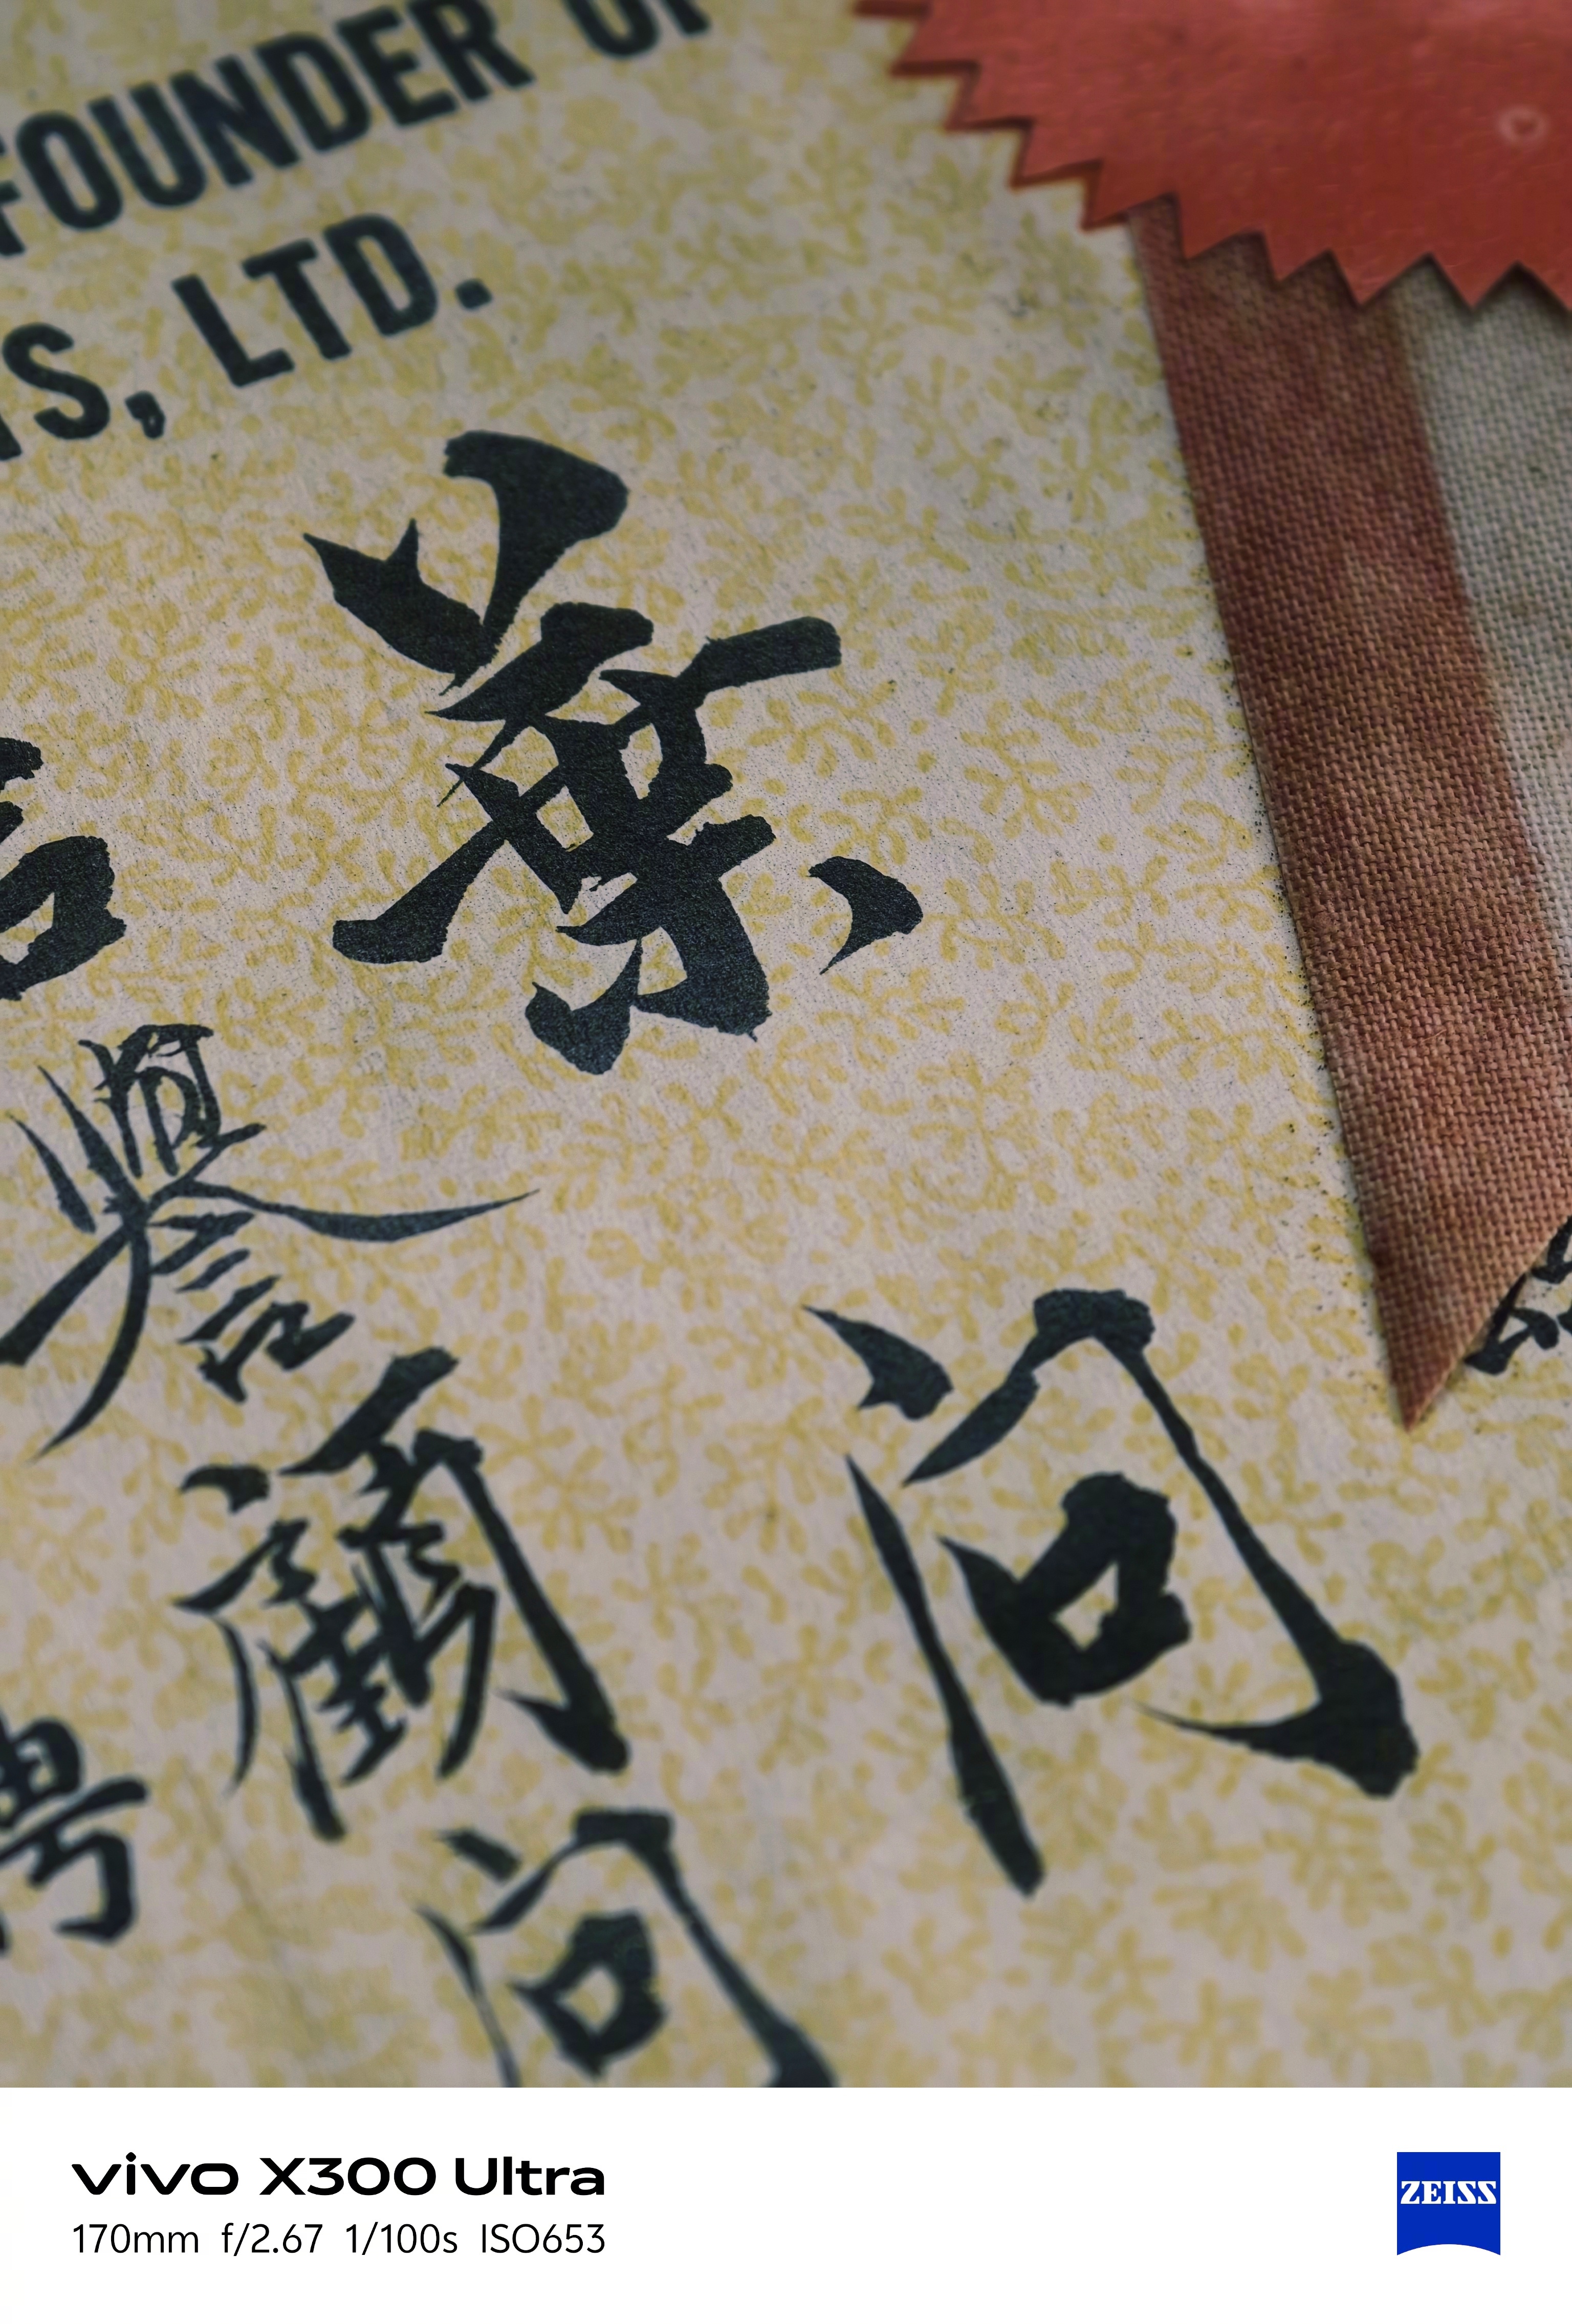 FOUNDER OF
LTD.
葉问
譽顧问
vivo X300 Ultra
170mm f/2.67 1/100s ISO653
ZEISS